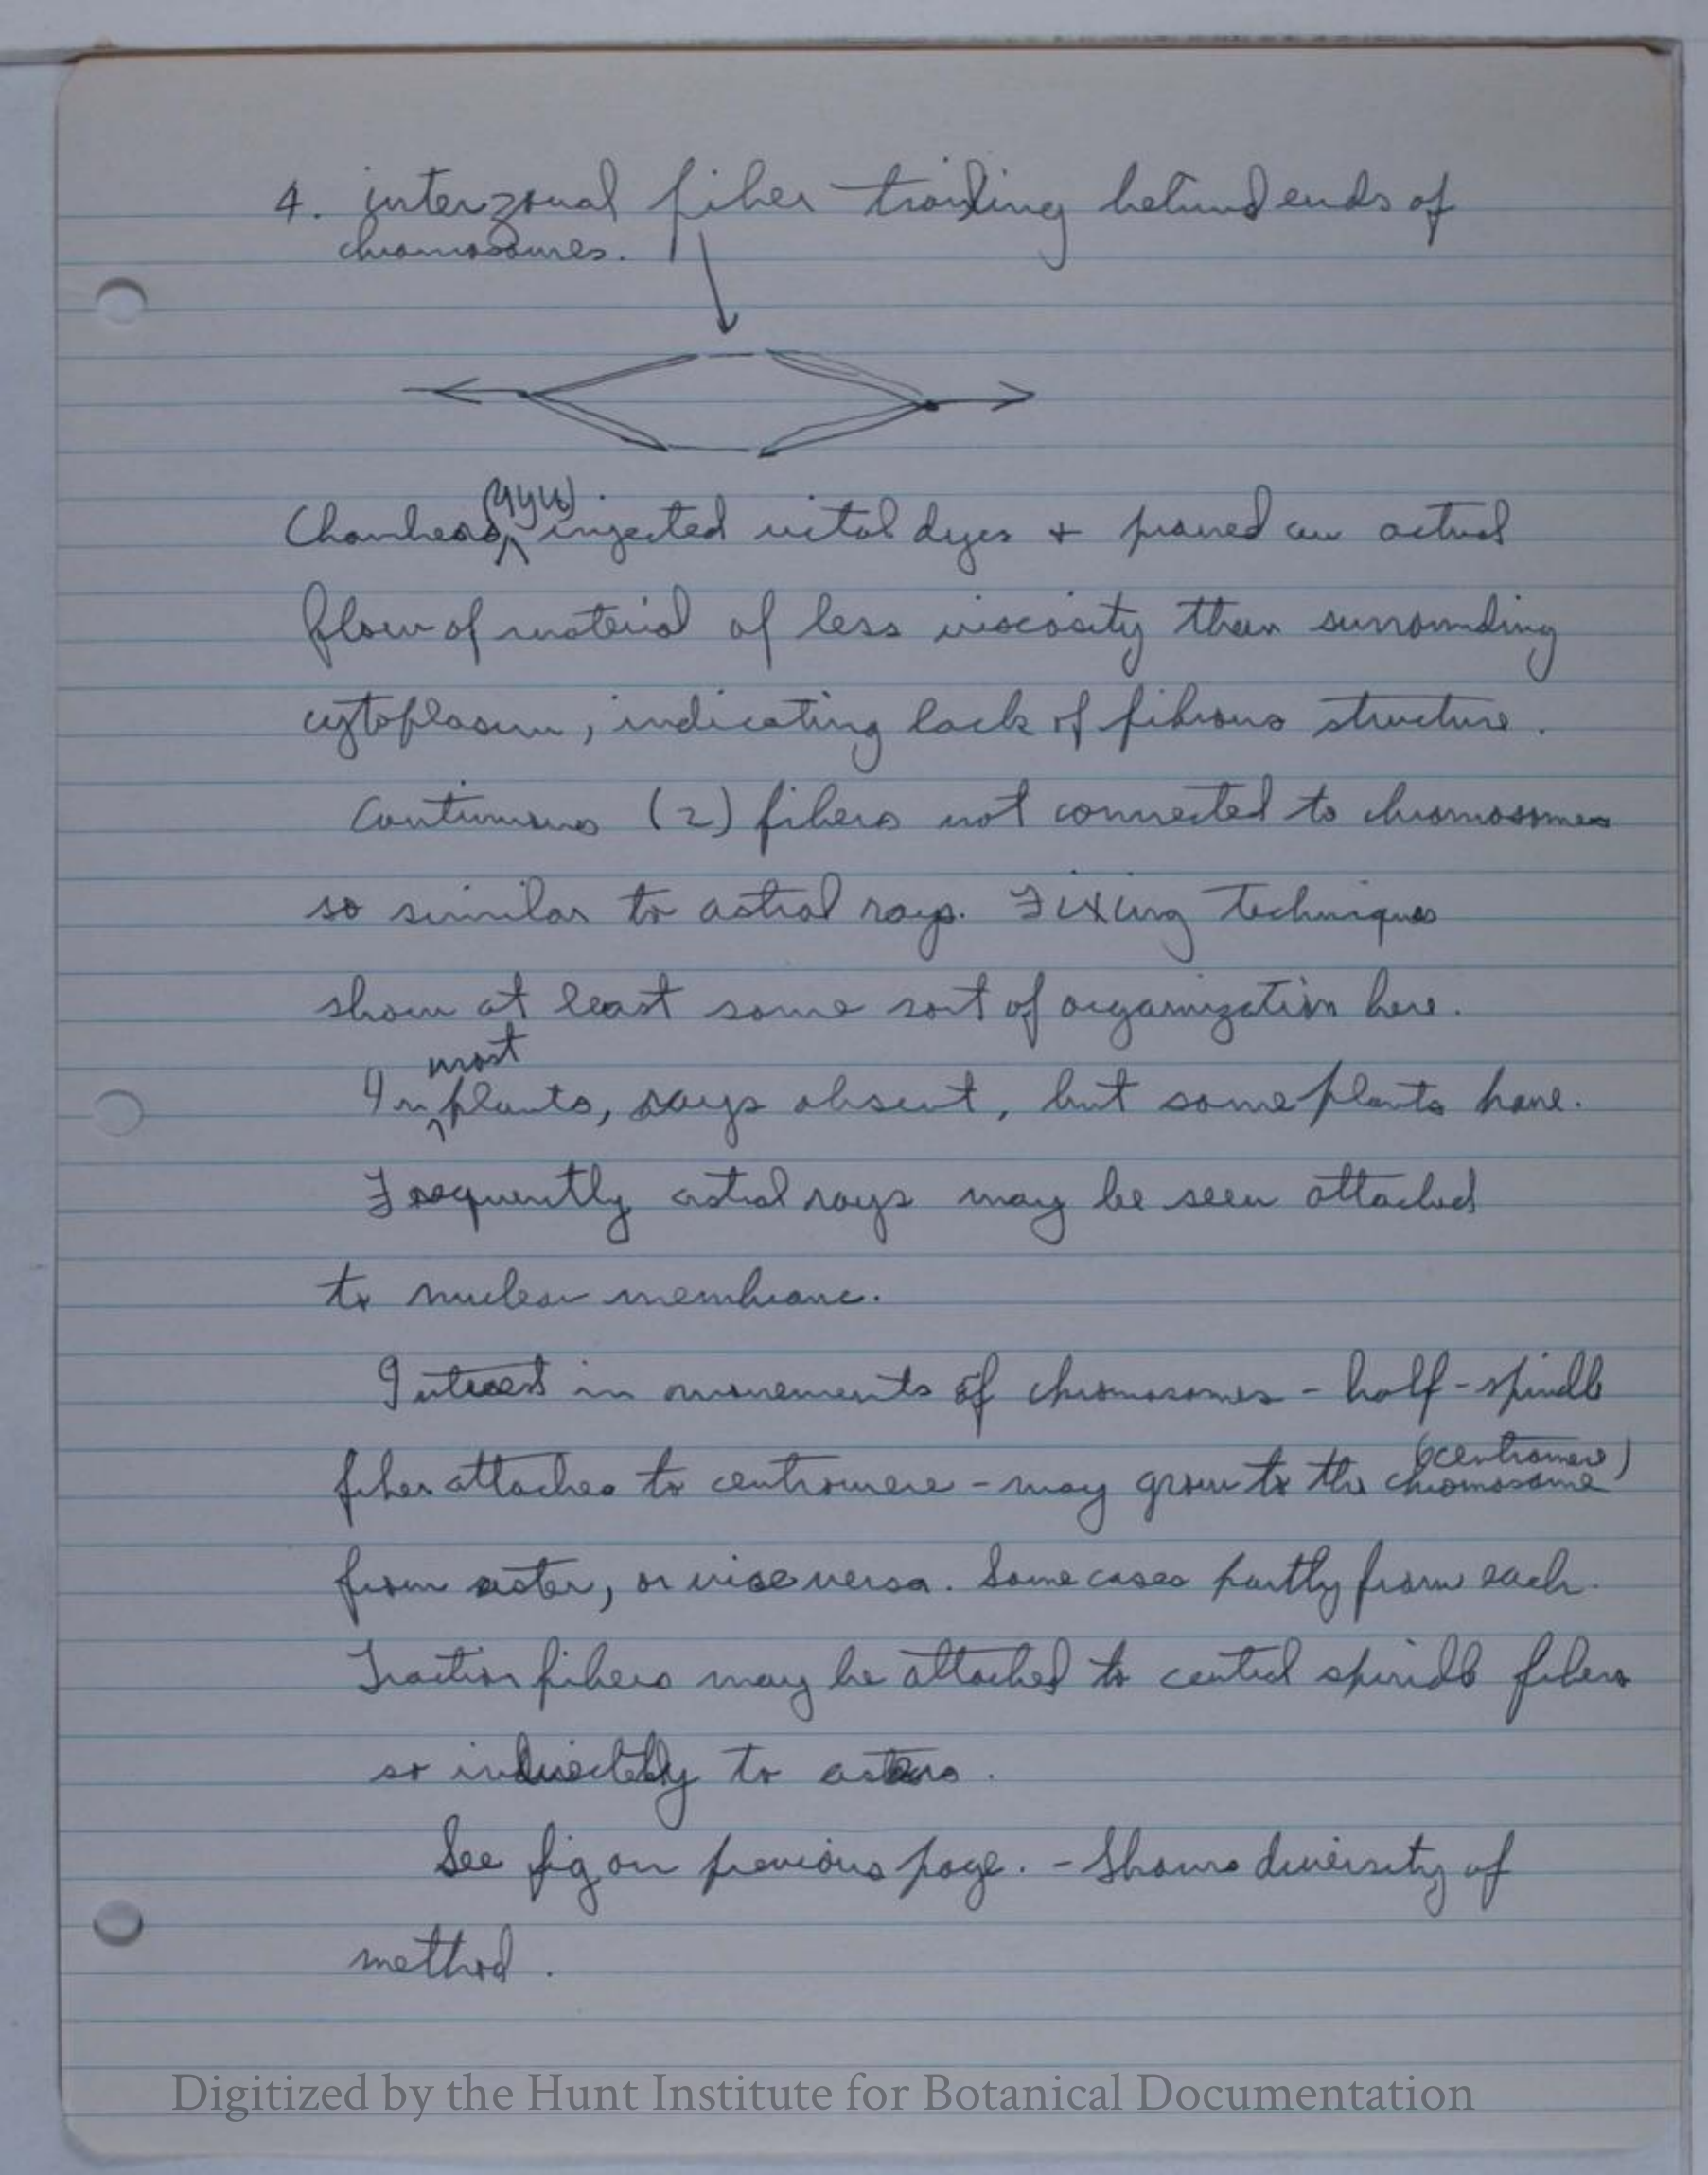 4. interzonal fiber trailing behind ends of
chromosomes.
(NYU)
Chambers, injected vital dyes + proved an actual
flow of material of less viscosity than surrounding
cytoplasm, indicating lack of fibrous structure.
Continuous (2) fibers not connected to chromosomes
so similar to astral rays. Fixing techniques
show at least some sort of organization here.
most
In plants, rays absent, but some plants have.
Frequently astral rays may be seen attached
to nuclear membrane.
Interest in movements of chromosomes - half-spindle
(centromere)
fiber attaches to centromere - may grow to the chromosome
from aster, or vice versa. Some cases partly from each.
Traction fibers may be attached to central spindle fibers
so indirectly to asters.
See fig on previous page. - Shows diversity of
method.
Digitized by the Hunt Institute for Botanical Documentation